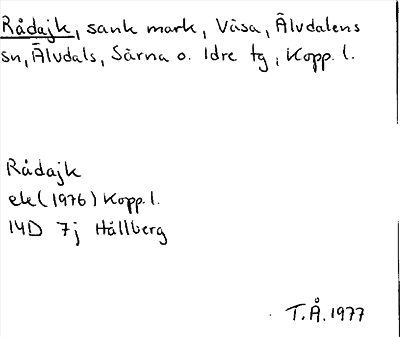 Rådajk, sank mark, Våsa, Älvdalens
sn, Älvdals, Särna o. Idre tg, Kopp. l.
Rådajk
ek (1976) Kopp. l.
14D 7j Hållberg
T.Å. 1977